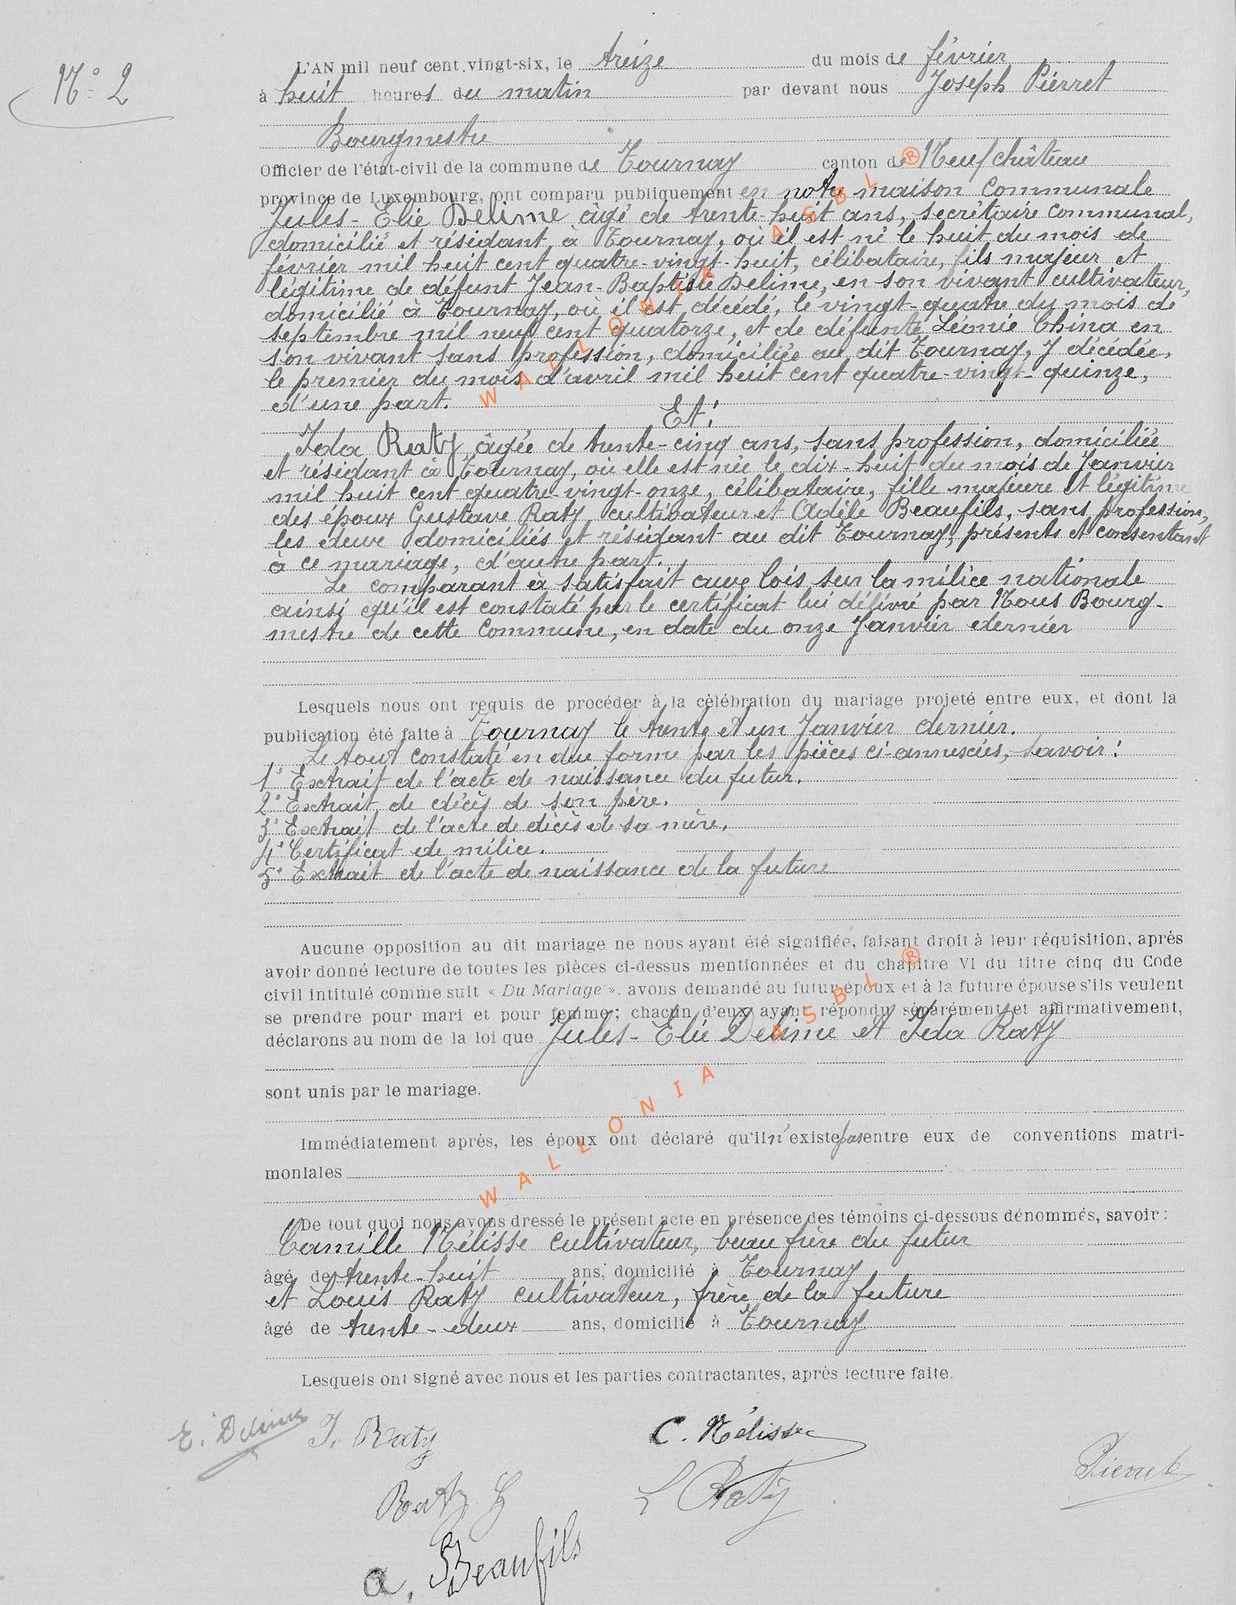 N° 2
L'AN mil neuf cent vingt-six, le treize du mois de février
à huit heures du matin par devant nous Joseph Pierret
Bourgmestre
Officier de l'état-civil de la commune de Tournay canton de Neufchâteau
province de Luxembourg, ont comparu publiquement en notre maison communale
Jules-Elie Delime âgé de trente-huit ans, secrétaire communal,
domicilié et résidant à Tournay, où il est né le huit du mois de
février mil huit cent quatre-vingt-huit, célibataire, fils majeur et
légitime de défunt Jean-Baptiste Delime, en son vivant cultivateur,
domicilié à Tournay, où il est décédé, le vingt-quatre du mois de
septembre mil neuf cent quatorze, et de défunte Léonie China en
son vivant sans profession, domiciliée au dit Tournay, y décédée,
le premier du mois d'avril mil huit cent quatre-vingt-quinze,
d'une part.
Et:
Ida Raty, âgée de trente-cinq ans, sans profession, domiciliée
et résidant à Tournay, où elle est née le dix-huit du mois de Janvier
mil huit cent quatre-vingt-onze, célibataire, fille majeure et légitime
des époux Gustave Raty, cultivateur et Adèle Beaufils, sans profession,
les deux domiciliés et résidant au dit Tournay, présents et consentant
à ce mariage, d'autre part.
Le comparant à satisfait aux lois sur la milice nationale
ainsi qu'il est constaté par le certificat lui délivré par Nous Bourg-
mestre de cette Commune, en date du onze Janvier dernier
Lesquels nous ont requis de procéder à la célébration du mariage projeté entre eux, et dont la
publication été faite à Tournay le trente et un Janvier dernier.
Le tout constaté en due forme par les pièces ci-annexées, savoir:
1° Extrait de l'acte de naissance du futur.
2° Extrait de décès de son père.
3° Extrait de l'acte de décès de sa mère.
4° Certificat de milice.
5° Extrait de l'acte de naissance de la future
Aucune opposition au dit mariage ne nous ayant été signifiée, faisant droit à leur réquisition, après
avoir donné lecture de toutes les pièces ci-dessus mentionnées et du chapitre VI du titre cinq du Code
civil intitulé comme suit « Du Mariage ». avons demandé au futur époux et à la future épouse s'ils veulent
se prendre pour mari et pour femme; chacun d'eux ayant répondu séparément et affirmativement,
déclarons au nom de la loi que Jules-Elie Delime et Ida Raty
sont unis par le mariage.
Immédiatement après, les époux ont déclaré qu'il n'existe pas entre eux de conventions matri-
moniales
De tout quoi nous avons dressé le présent acte en présence des témoins ci-dessous dénommés, savoir:
Camille Nélisse cultivateur, beau frère du futur
âgé de trente-huit ans, domicilié à Tournay
et Louis Raty cultivateur, frère de la future
âgé de trente-deux ans, domicilié à Tournay
Lesquels ont signé avec nous et les parties contractantes, après lecture faite.
E. Delime I. Raty C. Nélisse
Raty G L Raty Pierret
a. Beaufils
WALLONIA ASBL ®
WALLONIA ASBL ®